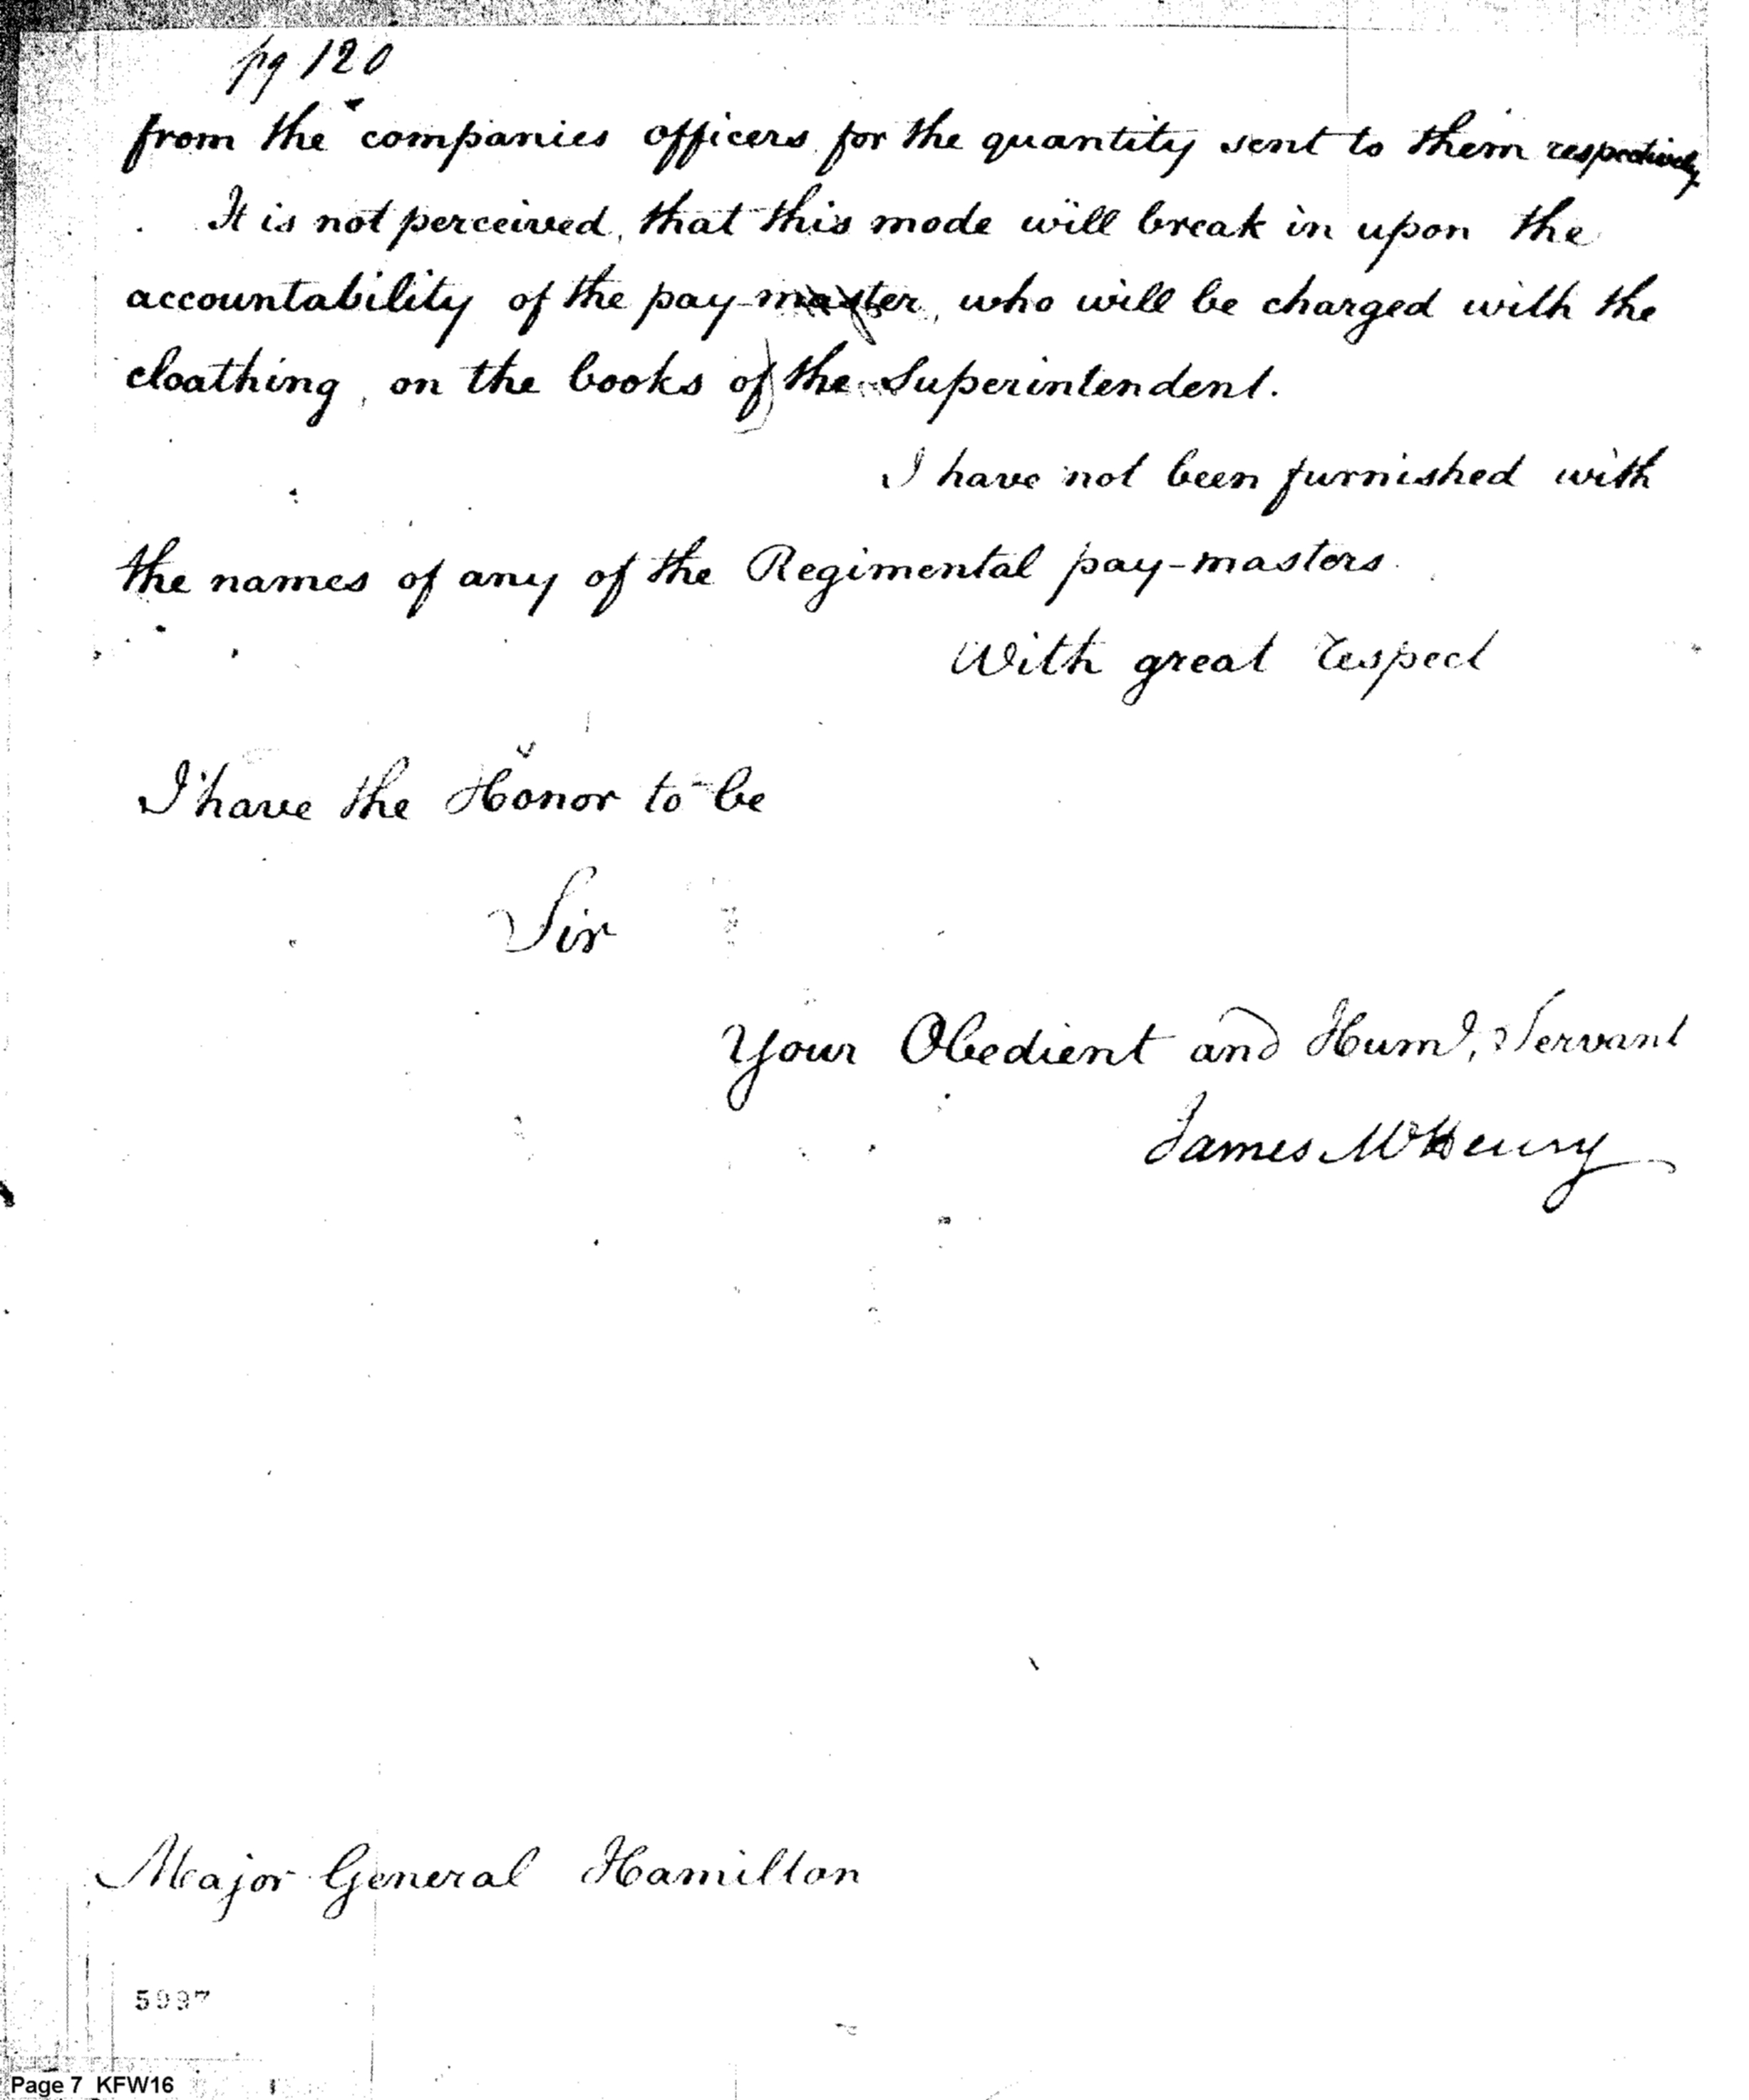 pg 120
from the companies officers for the quantity sent to them respectively
It is not perceived, that this mode will break in upon the
accountability of the pay-master, who will be charged with the
cloathing, on the books of the Superintendent.
I have not been furnished with
the names of any of the Regimental pay-masters.
With great respect
I have the Honor to be
Sir
Your Obedient and Huml, Servant
James McHenry
Major General Hamilton
5997
Page 7 KFW16